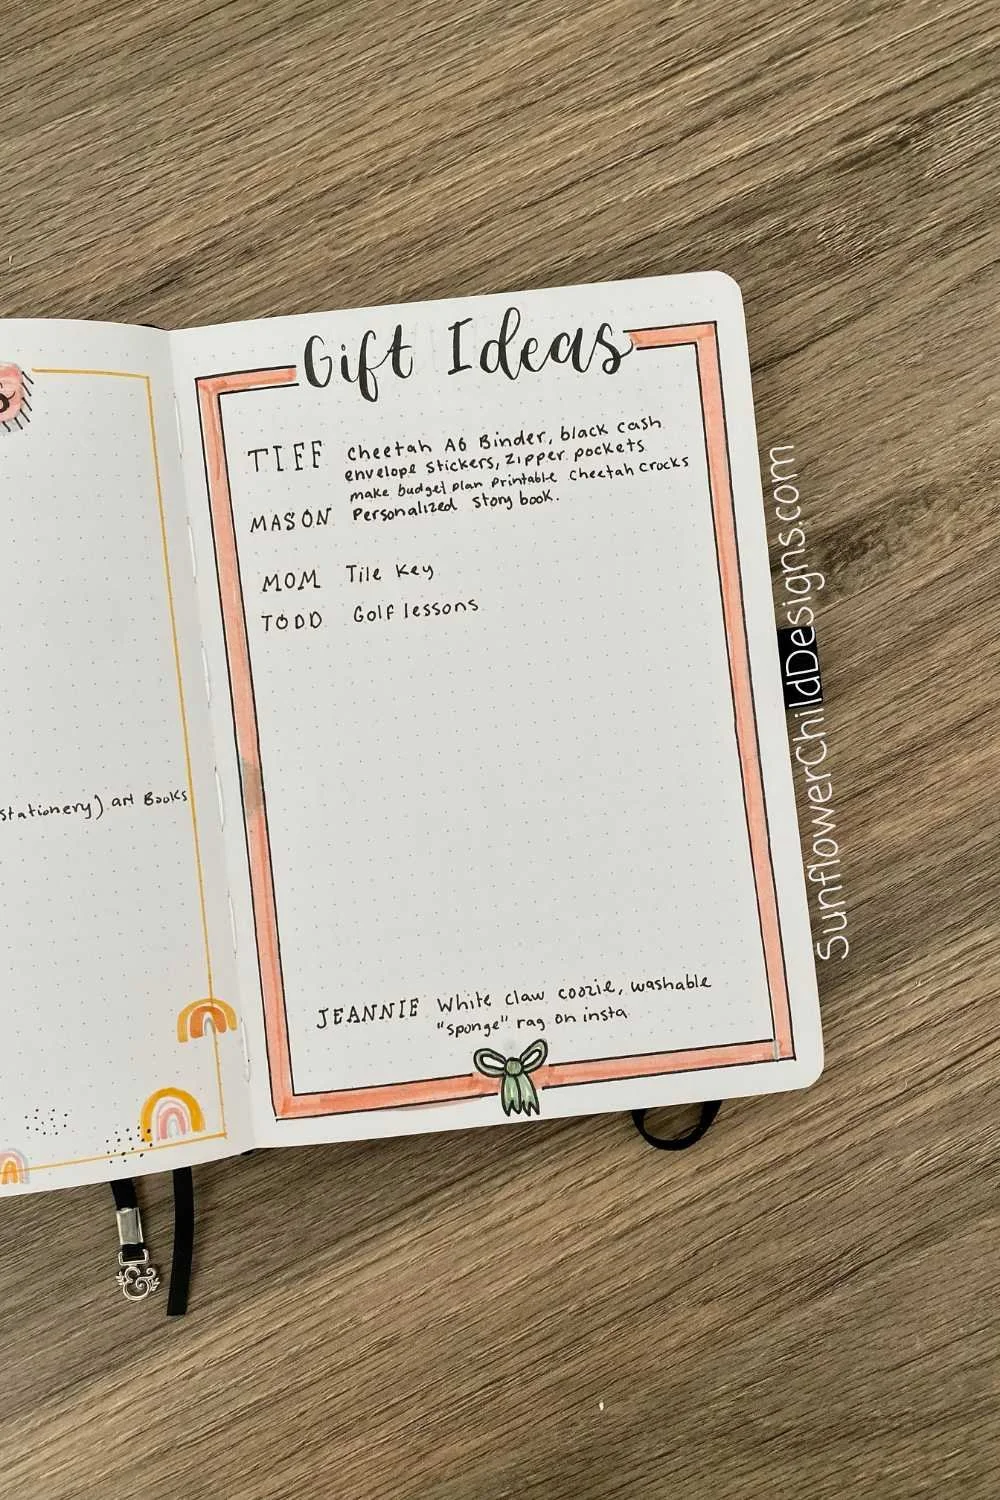 Gift Ideas
TIFF cheetah A6 Binder, black cash
envelope stickers, zipper pockets
make budget plan printable cheetah crocks
MASON Personalized story book.
MOM Tile key
TODD Golf lessons
JEANNIE White claw coozie, washable
"sponge" rag on insta
stationery) art Books
SunflowerChildDesigns.com